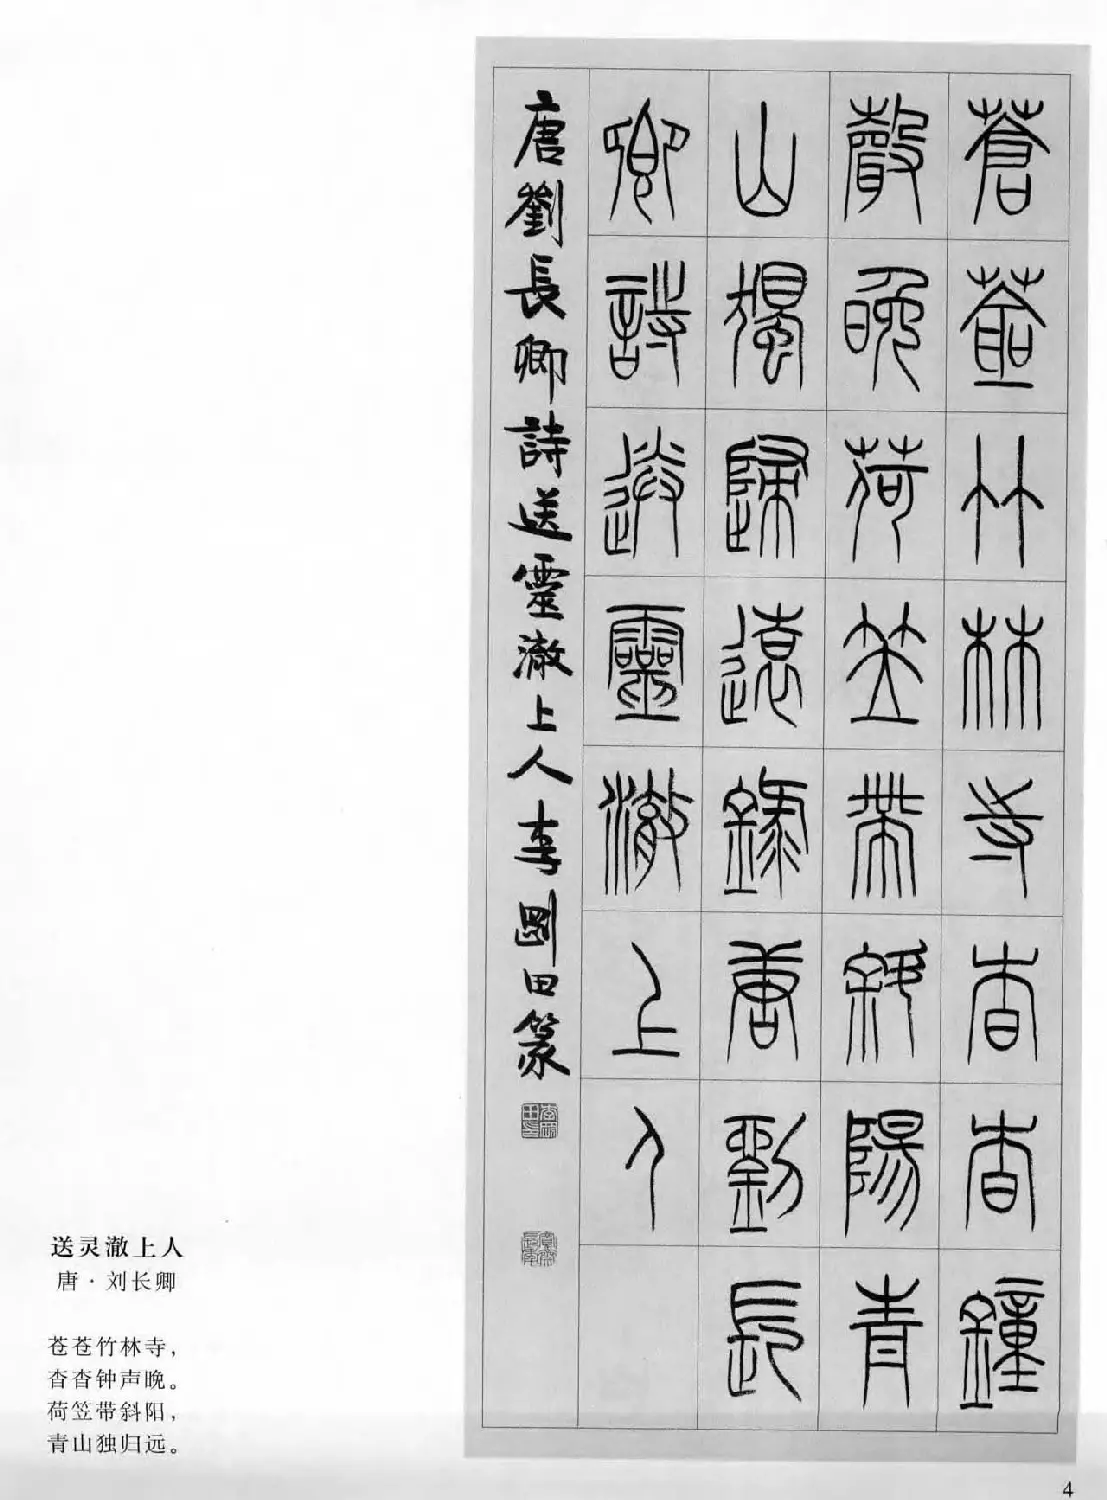 蒼蒼竹林寺杳杳鐘
聲晚荷笠帶斜陽青
山獨歸遠錄唐劉長
卿詩送靈澈上人
唐劉長卿詩送靈澈上人李剛田篆
送灵澈上人
唐·刘长卿
苍苍竹林寺，
杳杳钟声晚。
荷笠带斜阳，
青山独归远。
4